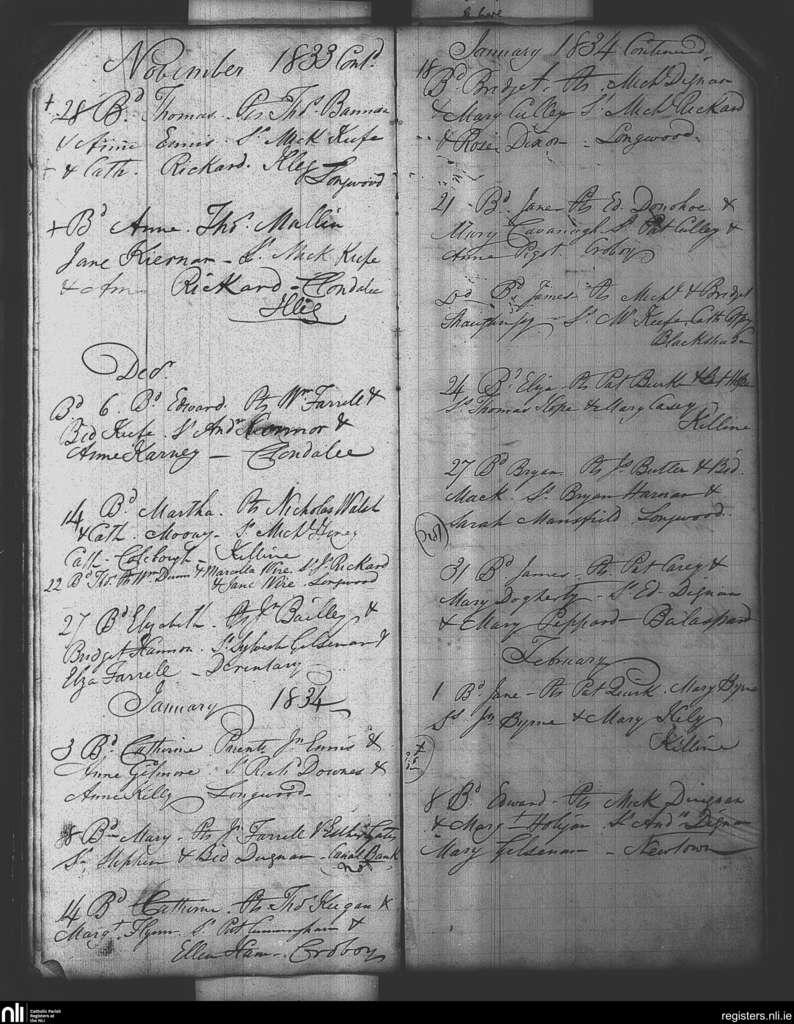 November 1833 Contd
+ 28 Bd Thomas. Ps Thos. Bannon
& Anne Ennis. Ss Mick Keefe
+ & Cath. Rickard. Illeg
Longwood
+ Bd Anne. Thos. Mallin
Jane Kiernan - Ss. Mick Keefe
& Ann Rickard - Clondalee
Illeg
Decr.
Bd 6. Bd Edward. Ps Wm Farrell &
Bid Keefe. Ss Andw Connor &
Anne Karney - Clondalee
14 Bd Martha. Ps Nicholas Walsh
& Cath. Mooney - Ss Michl Heney
Cath - Coleborgh - Killine
22 Bd Thos. Ps Wm Dunn & Marcella Wire. Ss Js Rickard
& Jane Wire. Longwood
27 Bd Elizabeth. Ps Jn Bailley &
Bridget Hannon. Ss Sylvestr Gilsenan &
Elza Farrell - Derentary
January 1834
3 Bd Catherine Parents Jn Ennis &
Anne Gilmore Ss Richd Downes &
Anne Kelly Longwood
8 Bd Mary. Ps Js Farrell & Esther
Ss Stephen & Bid Duignan - Canal Bank
not
14 Bd Catherine - Ps Thos Keegan &
Margt. Flynn. Ss Pat Cunningham &
Ellen Ham - Croboy
January 1834 Continued
18 Bd Bridget. Ps. Michl Dignan
& Mary Culley Ss Michl Rickard
& Rose Dixon - Longwood
21 Bd Jane Ps Ed. Donohoe &
Mary Cavanagh Ss Pat Culley &
Anne Pigot. Croboy
Do Bd James Ps Michl & Bridget
Shaughnessy - Ss Ml Keefe Cath
Blackshade
24 Bd Eliza Ps Pat Burke &
Ss Thomas Hope & Mary Casey
Killine
27 Bd Bryan Ps Js Butler & Bid.
Mack. Ss. Bryan Harnan &
Sarah Mansfield - Longwood.
31 Bd James. Ps. Pat Carey &
Mary Dogherty - Ss Ed. Dignan
& Mary Peppard - Balaspard
February
1 Bd Jane - Ps Pat Quirk. Mary Byrne
Ss Jn Byrne & Mary Kely
Killine
8 Bd Edward - Ps Mick Duignan
& Margt Ss Andw Dignan
Mary Gilsenan - Newtown
nli
Catholic Parish
Registers at
the NLI
registers.nli.ie